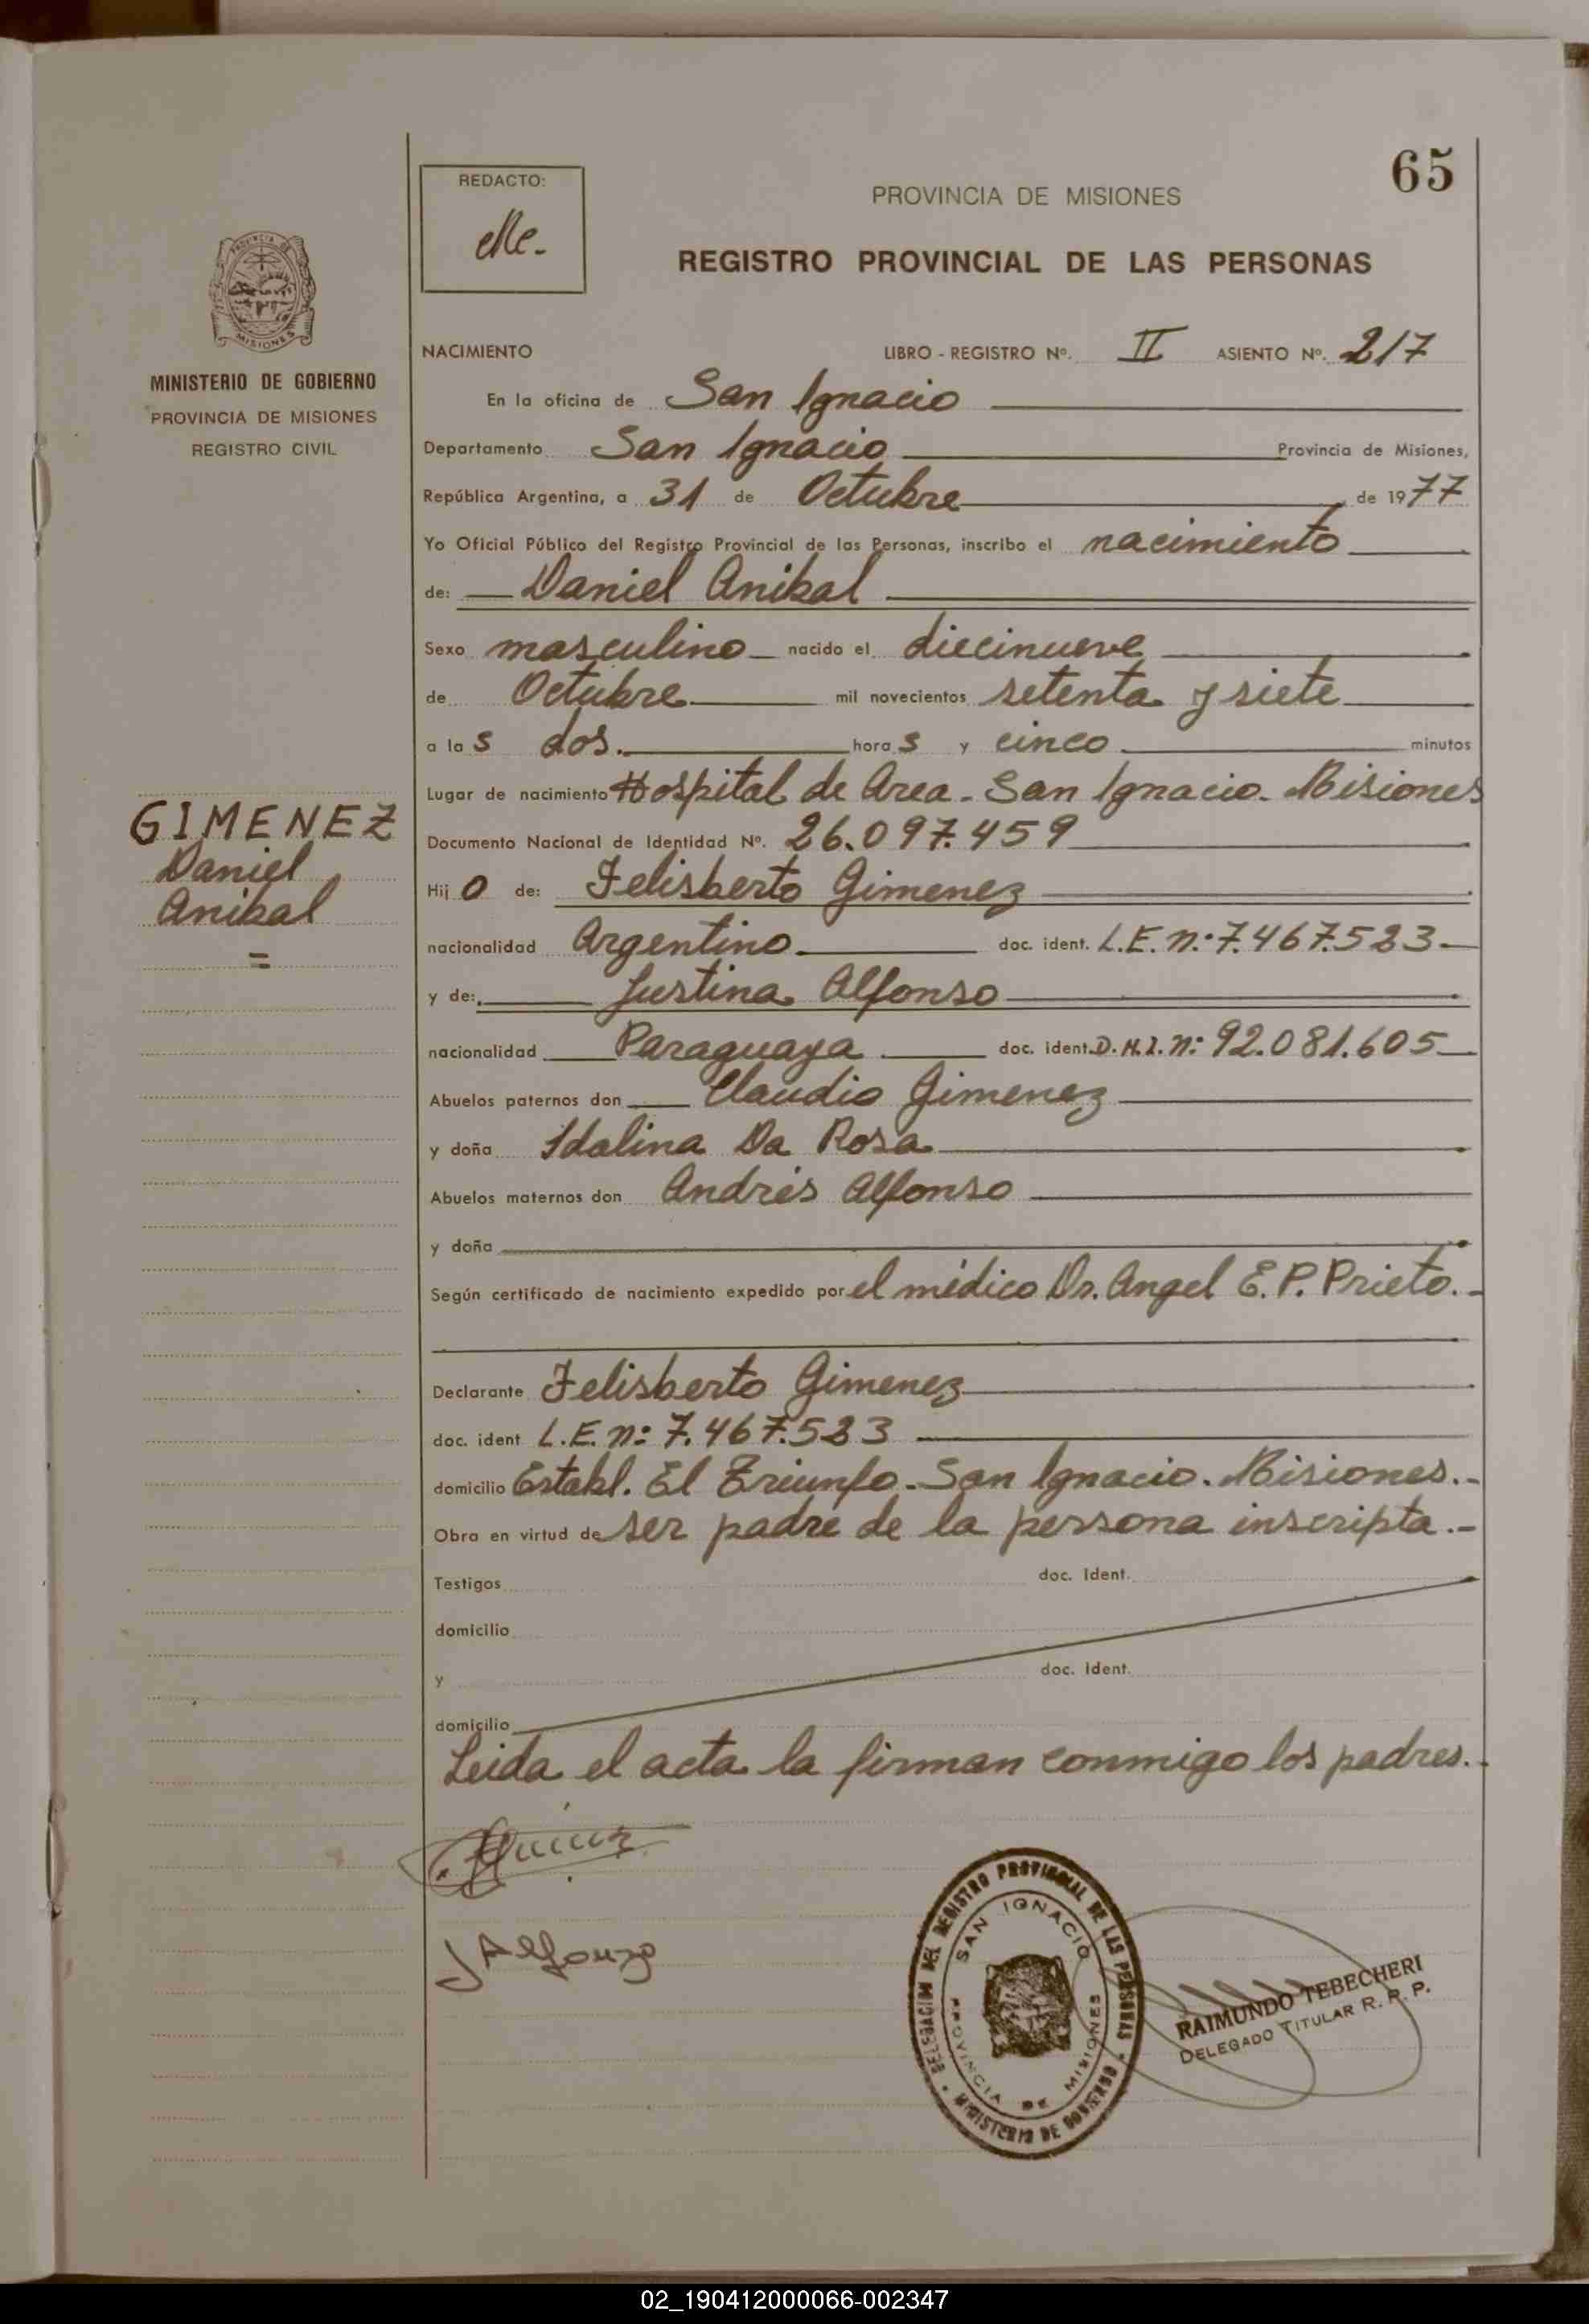 65
REDACTO:
PROVINCIA DE MISIONES
REGISTRO PROVINCIAL DE LAS PERSONAS
PROVINCIA DE
MISIONES
MINISTERIO DE GOBIERNO
PROVINCIA DE MISIONES
REGISTRO CIVIL
NACIMIENTO LIBRO - REGISTRO Nº. II ASIENTO Nº. 217
En la oficina de San Ignacio
Departamento San Ignacio Provincia de Misiones,
República Argentina, a 31 de Octubre de 1977
Yo Oficial Público del Registro Provincial de las Personas, inscribo el nacimiento
de: Daniel Anibal
Sexo masculino nacido el diecinueve
de Octubre mil novecientos setenta y siete
a las dos. horas y cinco minutos
Lugar de nacimiento Hospital de Area - San Ignacio - Misiones
GIMENEZ
Daniel
Anibal
=
Documento Nacional de Identidad Nº. 26.097.459
Hijo de: Felisberto Gimenez
nacionalidad Argentino doc. ident. L.E. n:º 7.467.523
y de: Justina Alfonso
nacionalidad Paraguaya doc. ident. D.N.I. n: 92.081.605
Abuelos paternos don Claudio Gimenez
y doña Idalina Da Rosa
Abuelos maternos don Andrés Alfonso
y doña
Según certificado de nacimiento expedido por el médico Dr. Angel E.P. Prieto.-
Declarante Felisberto Gimenez
doc. ident L.E. n: 7.467.523
domicilio Establ. El Triunfo - San Ignacio. Misiones.-
Obra en virtud de ser padre de la persona inscripta.-
Testigos doc. Ident.
domicilio
y doc. Ident.
domicilio
Leida el acta la firman conmigo los padres.-
J Alfonzo
DELEGACION DEL REGISTRO PROVINCIAL DE LAS PERSONAS
MINISTERIO DE GOBIERNO
SAN IGNACIO
PROVINCIA DE MISIONES
RAIMUNDO TEBECHERI
DELEGADO TITULAR R. P. P.
02_190412000066-002347